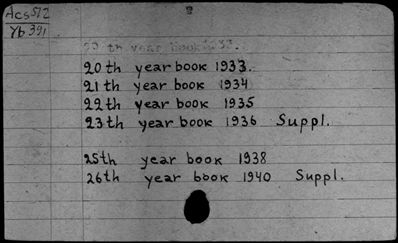 Acs 512
Yb 391
20 th year book 1933.
20th year book 1933.
21th year book 1934
22th year book 1935
23th year book 1936 Suppl.
25th year book 1938
26th year book 1940 Suppl.